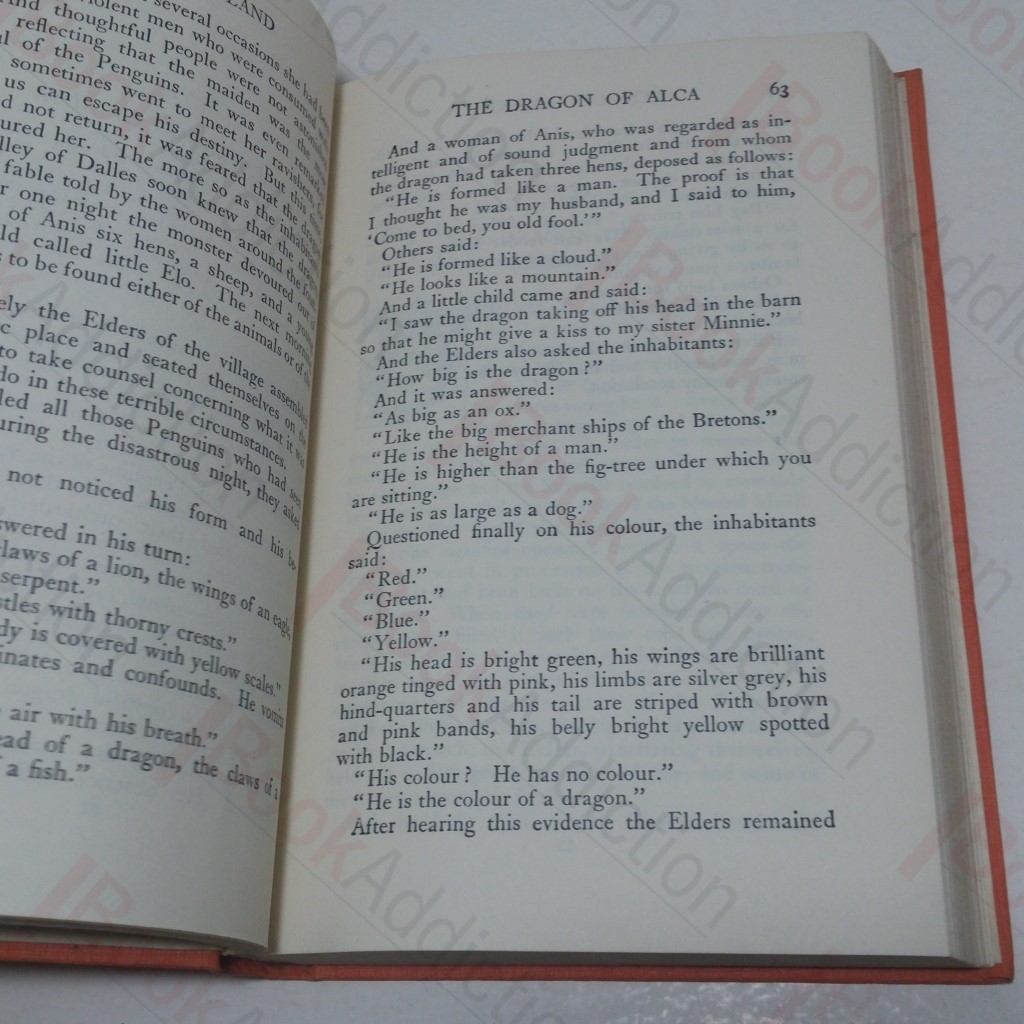 LAND
several occasions she had been
violent men who were consumed with
And thoughtful people were not astonished
reflecting that the maiden was the
of the Penguins. It was even remarked
sometimes went to meet her ravisher, for
us can escape his destiny. But this time
not return, it was feared that the dragon
her. The more so as the inhabitants
valley of Dalles soon knew that the dragon
fable told by the women around the
one night the monster devoured out of
of Anis six hens, a sheep, and a young
called little Elo. The next morning
to be found either of the animals or of the
the Elders of the village assembled
place and seated themselves on the
to take counsel concerning what it was
do in these terrible circumstances.
all those Penguins who had seen
during the disastrous night, they asked
not noticed his form and his be-
answered in his turn:
claws of a lion, the wings of an eagle,
serpent."
with thorny crests."
body is covered with yellow scales."
and confounds. He vomits
air with his breath."
head of a dragon, the claws of a
a fish."
THE DRAGON OF ALCA 63
And a woman of Anis, who was regarded as in-
telligent and of sound judgment and from whom
the dragon had taken three hens, deposed as follows:
"He is formed like a man. The proof is that
I thought he was my husband, and I said to him,
'Come to bed, you old fool.'"
Others said:
"He is formed like a cloud."
"He looks like a mountain."
And a little child came and said:
"I saw the dragon taking off his head in the barn
so that he might give a kiss to my sister Minnie."
And the Elders also asked the inhabitants:
"How big is the dragon?"
And it was answered:
"As big as an ox."
"Like the big merchant ships of the Bretons."
"He is the height of a man."
"He is higher than the fig-tree under which you
are sitting."
"He is as large as a dog."
Questioned finally on his colour, the inhabitants
said:
"Red."
"Green."
"Blue."
"Yellow."
"His head is bright green, his wings are brilliant
orange tinged with pink, his limbs are silver grey, his
hind-quarters and his tail are striped with brown
and pink bands, his belly bright yellow spotted
with black."
"His colour? He has no colour."
"He is the colour of a dragon."
After hearing this evidence the Elders remained
BookAddiction